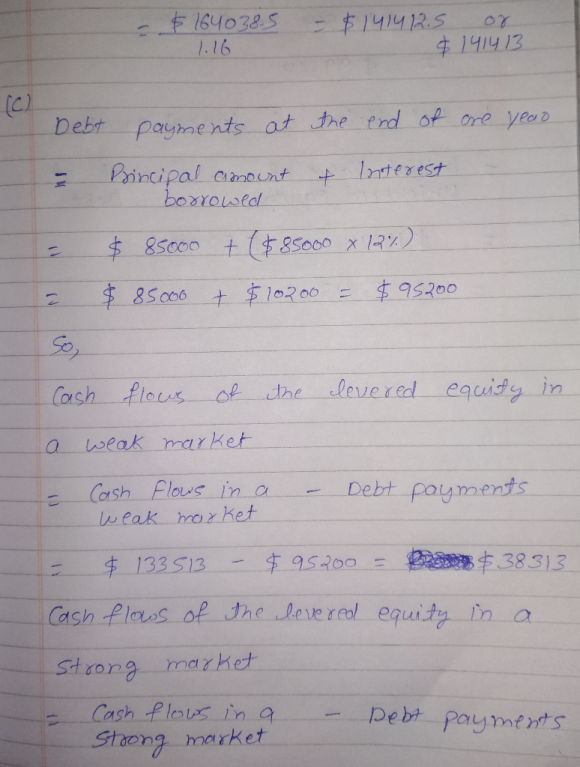 = $ 164038.5 = $ 141412.5 or
1.16 $ 141413
(C)
Debt payments at the end of one year
= Principal amount + Interest
borrowed
= $ 85000 + ($ 85000 x 12%)
= $ 85000 + $ 10200 = $ 95200
So,
Cash flows of the levered equity in
a weak market
= Cash flows in a - Debt payments
weak market
= $ 133513 - $ 95200 = $ 38313
Cash flows of the levered equity in a
strong market
= Cash flows in a - Debt payments
Strong market